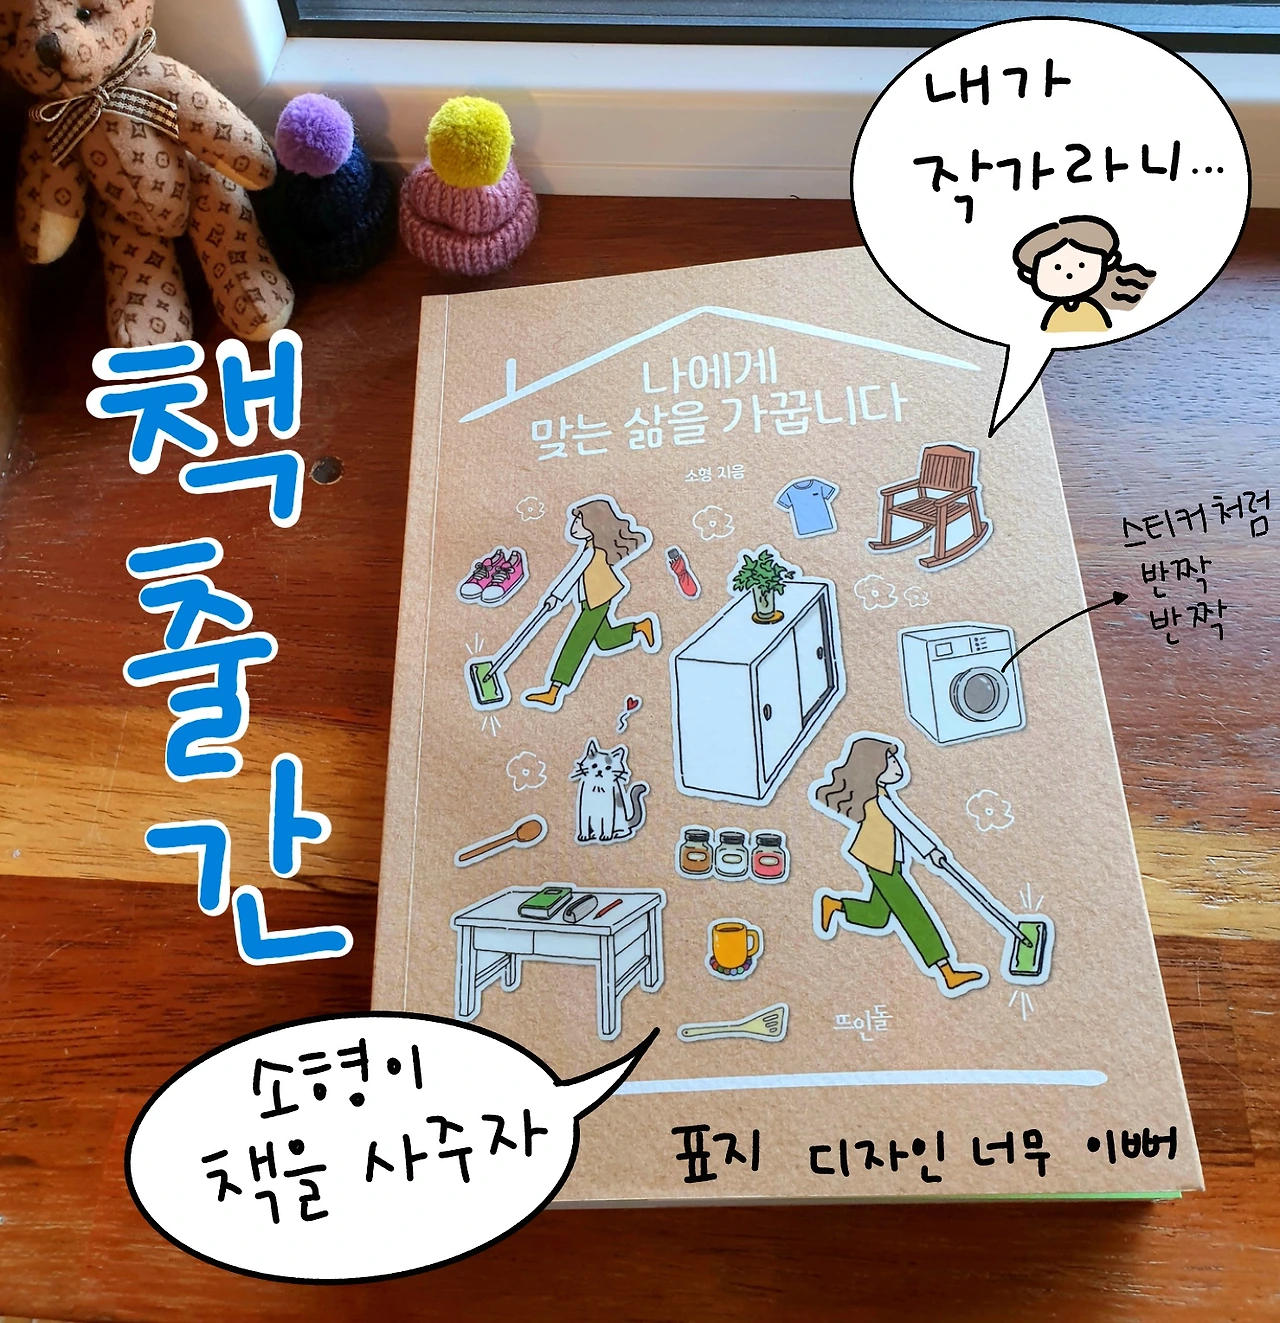 내가
작가라니...
나에게
맞는 삶을 가꿉니다
소형 지음
책
출
간
스티커처럼
반짝
반짝
뜨인돌
소형이
책을 사주자
표지 디자인 너무 이뻐